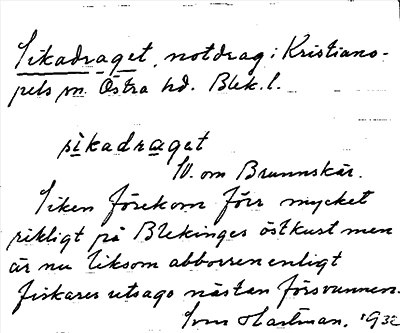 Sikadraget, notdrag i Kristiano-
pels sn. Östra hd. Blek. l.
sikadraget
SV. om Brunnskär.
Siken förekom förr mycket
rikligt på Blekinges östkust men
är nu liksom abborren enligt
fiskares utsago nästan försvunnen.
Sven Hartman. 1932